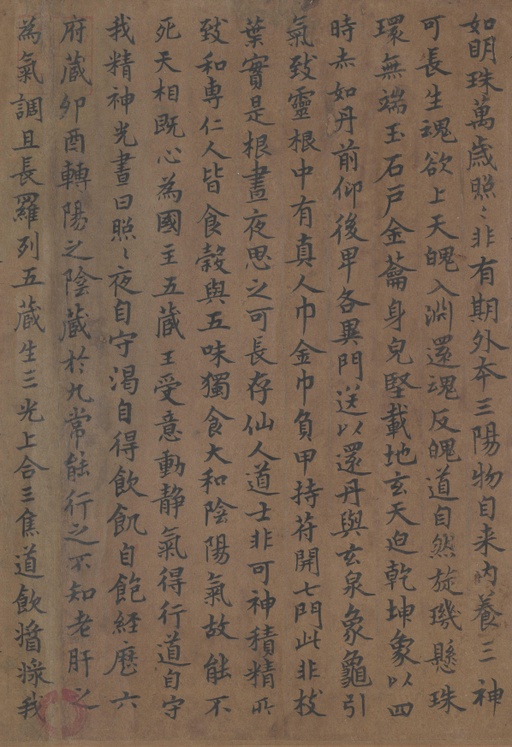 如明珠萬歲照〻非有期外本三陽物自来内養三神
可長生魂欲上天魄入渊還魂反魄道自然旋璣懸珠
環無端玉石戸金蘥身皃堅載地玄天迫乾坤象以四
時赤如丹前仰後卑各異門送以還丹與玄泉象龜引
氣致靈根中有真人巾金巾負甲持苻開七門此非枝
葉實是根晝夜思之可長存仙人道士非可神積精所
致和専仁人皆食穀與五味獨食大和陰陽氣故能不
死天相既心為國主五藏王受意動静氣得行道自守
我精神光晝日照〻夜自守渴自得飲飢自飽経歷六
府藏卯酉轉陽之陰藏於九常能行之不知老肝之
為氣調且長羅列五藏生三光上合三焦道飲醬㨾我